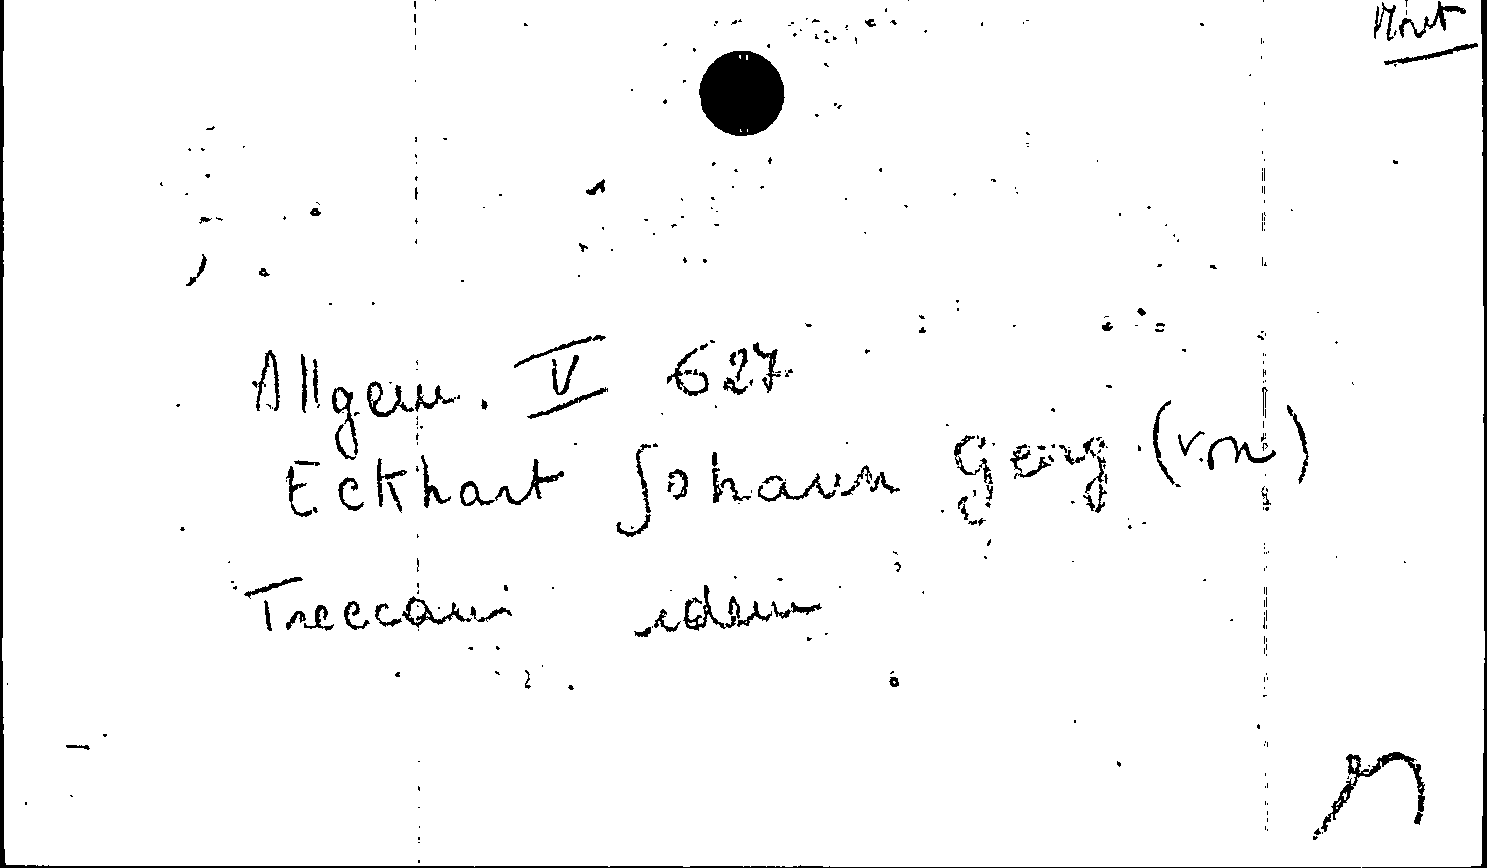 Allgem. V 627
Eckhart Johann Georg (von)
Treccani idem